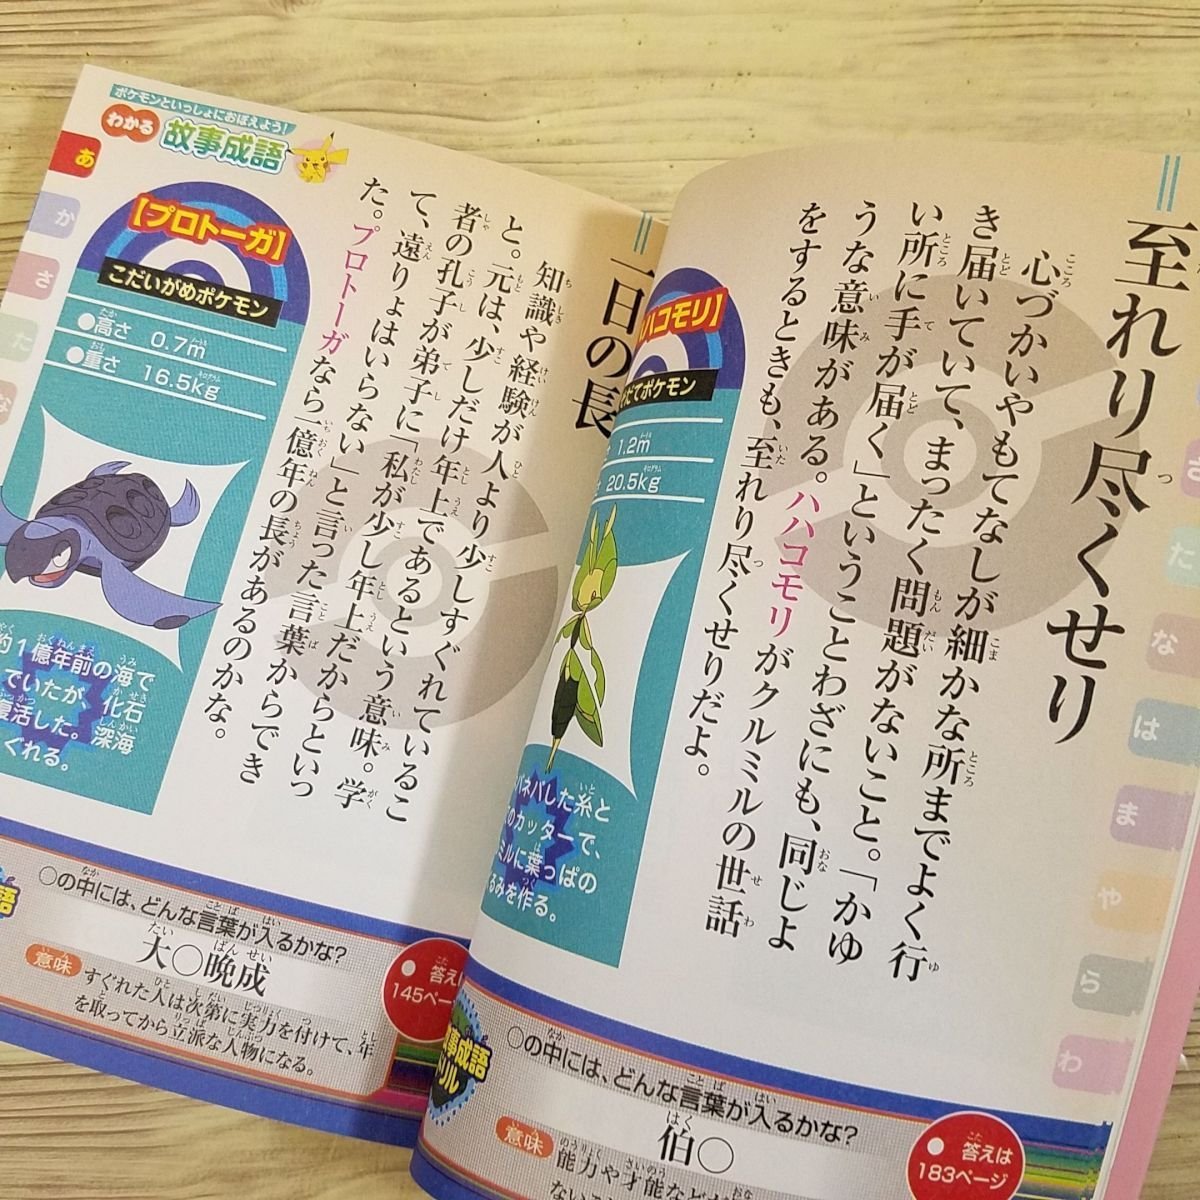 ポケモンといっしょにおぼえよう!
わかる
故事成語
あ
か
さ
た
な
一日の長
知識や経験が人より少しすぐれているこ
と。元は、少しだけ年上であるという意味。学
者の孔子が弟子に「私が少し年上だからといっ
て、遠りょはいらない」と言った言葉からでき
た。プロトーガなら一億年の長があるのかな。
【プロトーガ】
こだいがめポケモン
●高さ 0.7m
●重さ 16.5kg
約1億年前の海で
でいたが、化石
復活した。深海
ぐれる。
○の中には、どんな言葉が入るかな?
大○晩成
意味
すぐれた人は次第に実力を付けて、年
を取ってから立派な人物になる。
答えは
145ペー
至れり尽くせり
心づかいやもてなしが細かな所までよく行
き届いていて、まったく問題がないこと。「かゆ
い所に手が届く」ということわざにも、同じよ
うな意味がある。ハハコモリがクルミルの世話
をするときも、至れり尽くせりだよ。
ハコモリ】
だてポケモン
1.2m
20.5kg
バネバした糸と
のカッターで、
ミルに葉っぱの
るみを作る。
さ
た
な
は
ま
や
ら
わ
事成語
ドリル
○の中には、どんな言葉が入るかな?
伯○
意味
能力や才能など
答えは
183ページ